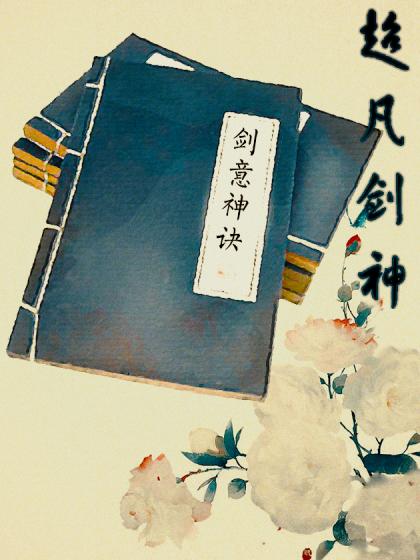 超凡剑神
剑意神诀